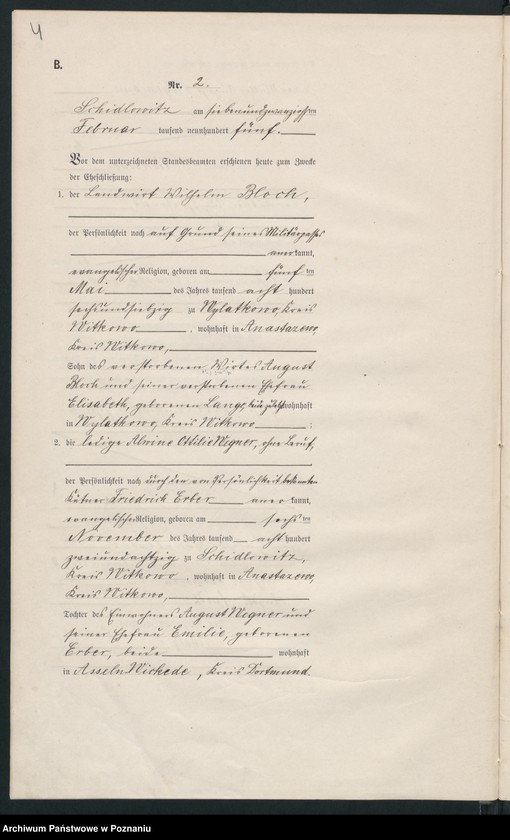 4
B.
Nr. 2.
Schidlowitz am siebenundzwanzigsten
Februar tausend neunhundert fünf.
Vor dem unterzeichneten Standesbeamten erschienen heute zum Zwecke
der Eheschließung:
1. der Landwirt Wilhelm Bloch,
der Persönlichkeit nach auf Grund seines Militärpasses
anerkannt,
evangelischer Religion, geboren am fünften
Mai des Jahres tausend acht hundert
sechsundsiebzig zu Mylatkowo, Kreis
Witkowo, wohnhaft in Anastazewo,
Kreis Witkowo,
Sohn des verstorbenen Wirtes August
Bloch und seiner verstorbenen Ehefrau
Elisabeth, geborenen Lange, wohnhaft
in Mylatkowo, Kreis Witkowo;
2. die ledige Alwine Ottilie Wegner, ohne Beruf,
der Persönlichkeit nach durch den von Persönlichkeit bekannten
Kätner Friedrich Erber anerkannt,
evangelischer Religion, geboren am sechsten
November des Jahres tausend acht hundert
zweiundachtzig zu Schidlowitz,
Kreis Witkowo, wohnhaft in Anastazewo,
Kreis Witkowo,
Tochter des Einwohners August Wegner und
seiner Ehefrau Emilie, geborenen
Erber, beide wohnhaft
in Asseln Wickede, Kreis Dortmund.
Archiwum Państwowe w Poznaniu